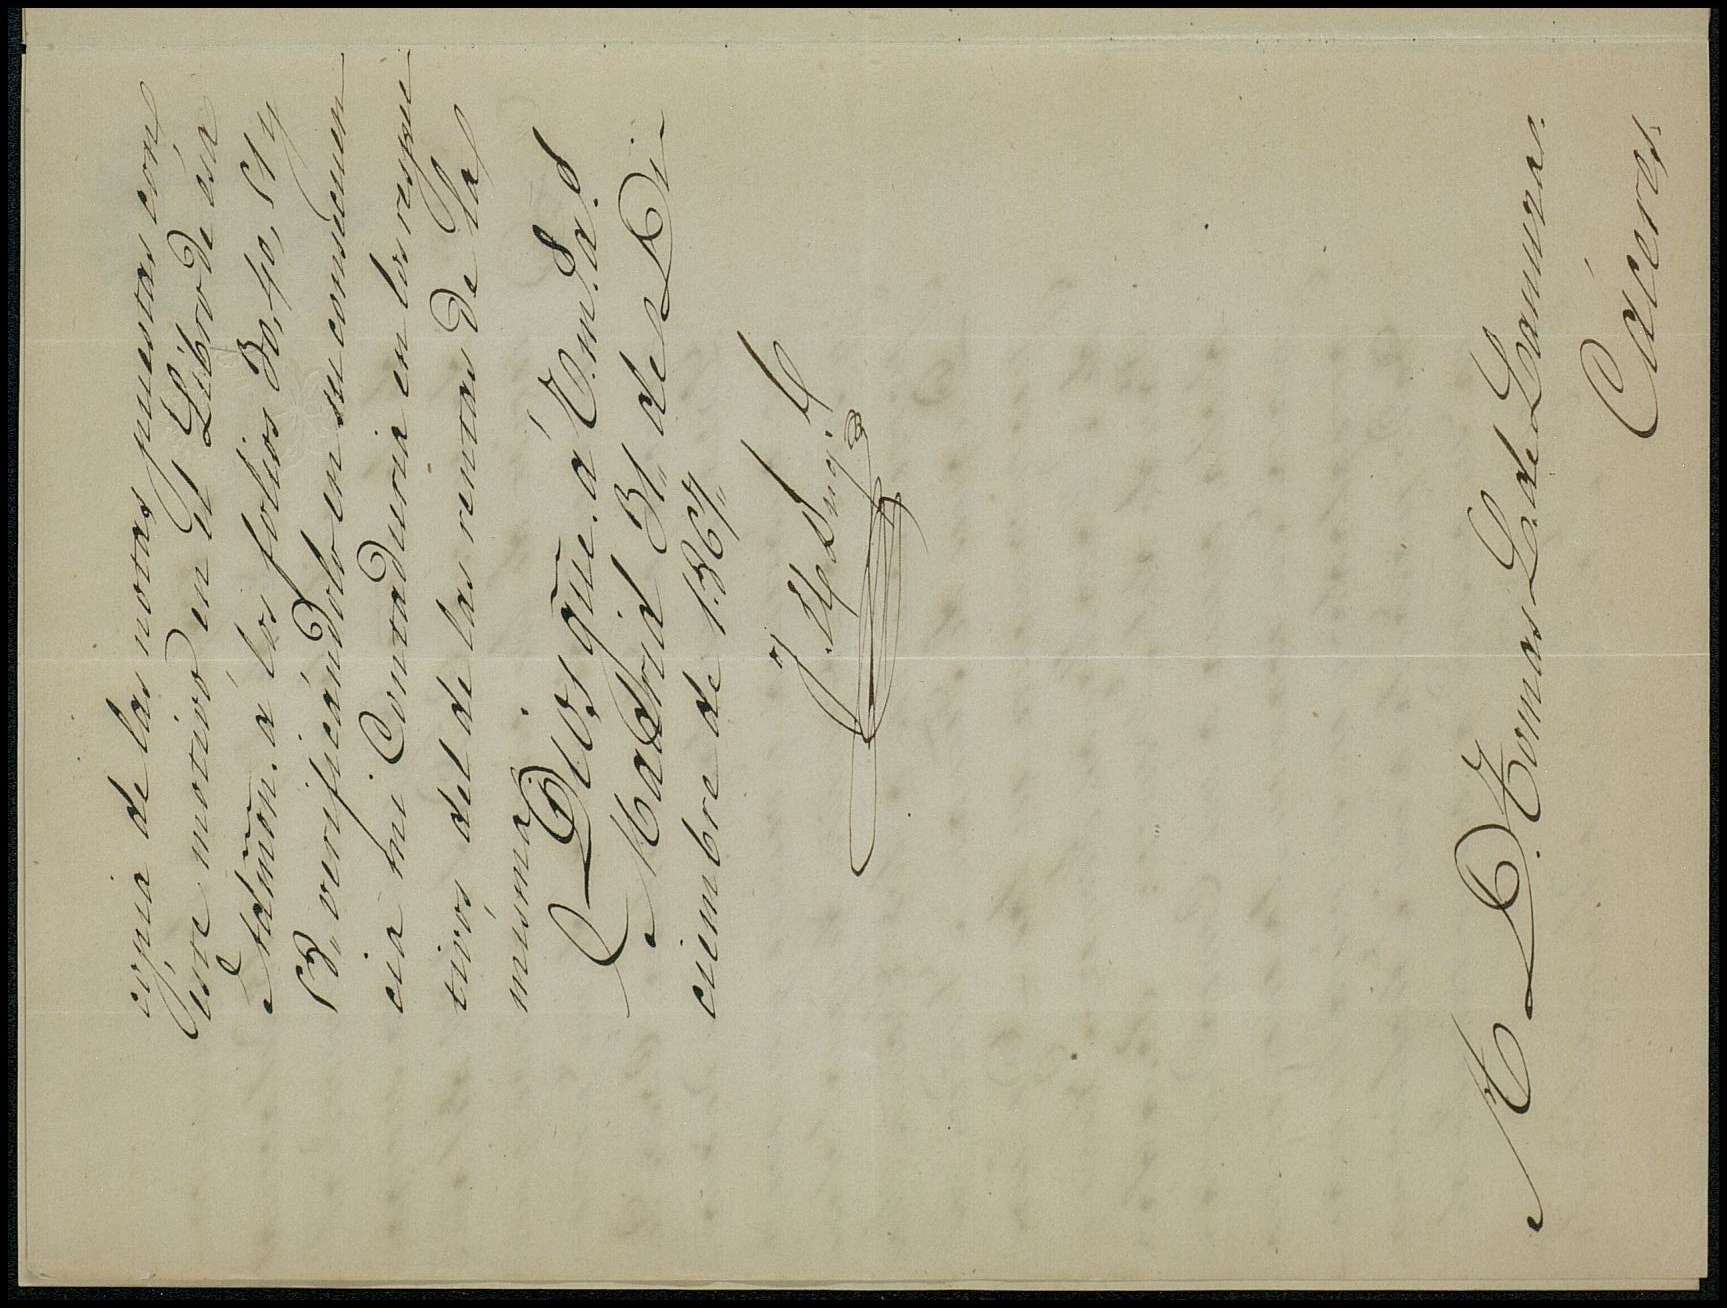 copia de las notas puestas con
este motivo en el Libro de esa
Admon. á los folios 30, 40, 51 y
58, verificándolo en su consecuen
cia mi Contaduria en los respec
tivos del de las rentas de la
misma.
Dios gue. á V. m. a. s
Madrid 31, de Di-
ciembre de 1867,,
A D. Tomas L. de Lamuza.
Cáceres.